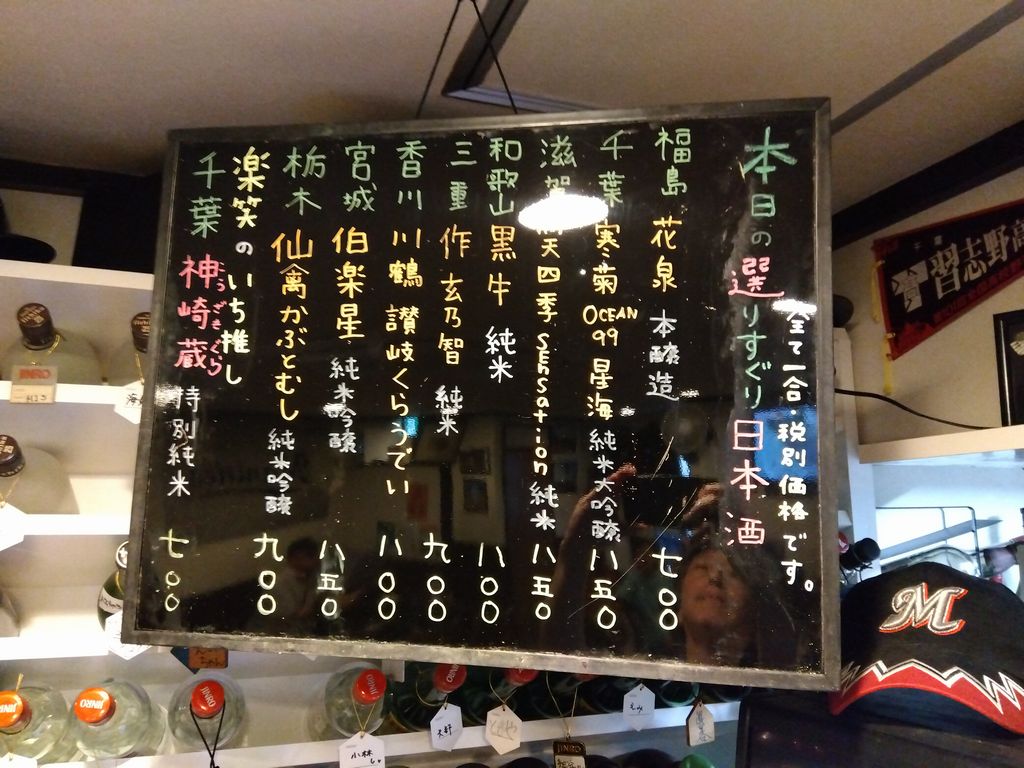 本日の選りすぐり日本酒
全て一合・税別価格です。
福島 花泉 本醸造 七〇〇
千葉 寒菊 OCEAN 99 星海 純米大吟醸 八五〇
滋賀 天四季 Sensation 純米 八五〇
和歌山 黒牛 純米 八〇〇
三重 作 玄乃智 純米 九〇〇
香川 川鶴 讃岐くらうでぃ 八〇〇
宮城 伯楽星 純米吟醸 八五〇
栃木 仙禽かぶとむし 純米吟醸 九〇〇
楽笑のいち推し
千葉 神崎蔵 特別純米 七〇〇
こうざきぐら
習志野高
M
JINRO
JINRO
JINRO
JINRO
JINRO
JINRO
小林